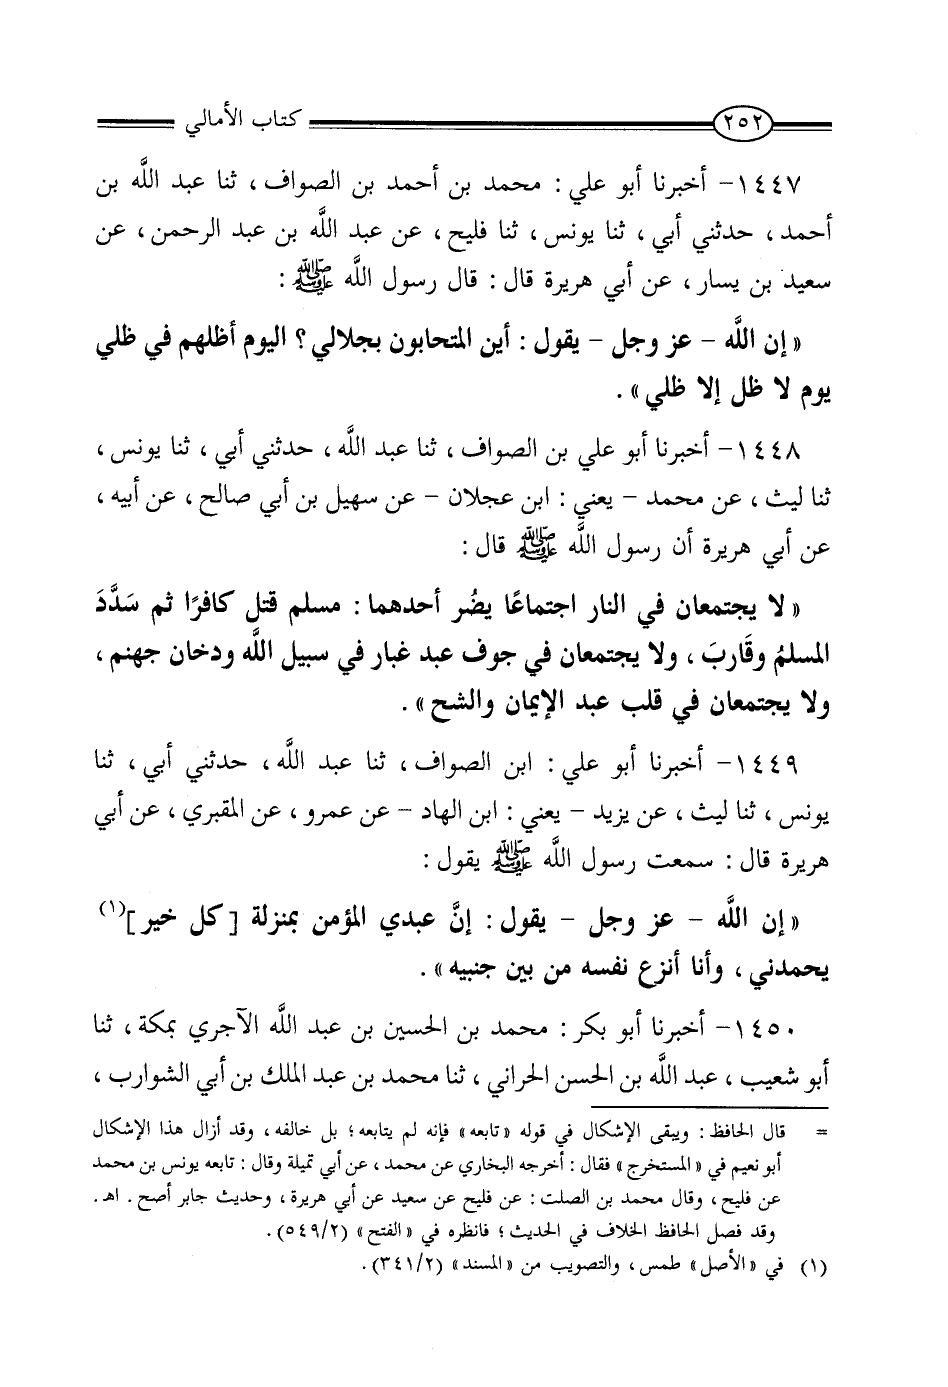 ٢٥٢ كتاب الأمالي
١٤٤٧- أخبرنا أبو علي : محمد بن أحمد بن الصواف ، ثنا عبد الله بن
أحمد ، حدثني أبي ، ثنا يونس ، ثنا فليح ، عن عبد الله بن عبد الرحمن ، عن
سعيد بن يسار ، عن أبي هريرة قال : قال رسول الله ﷺ :
« إن الله - عز وجل - يقول : أين المتحابون بجلالي ؟ اليوم أظلهم في ظلي
يوم لا ظل إلا ظلي » .
١٤٤٨- أخبرنا أبو علي بن الصواف ، ثنا عبد الله ، حدثني أبي ، ثنا يونس ،
ثنا ليث ، عن محمد - يعني : ابن عجلان - عن سهيل بن أبي صالح ، عن أبيه ،
عن أبي هريرة أن رسول الله ﷺ قال :
« لا يجتمعان في النار اجتماعًا يضُر أحدهما : مسلم قتل كافرًا ثم سَدَّدَ
المسلمُ وقَاربَ ، ولا يجتمعان في جوف عبد غبار في سبيل الله ودخان جهنم ،
ولا يجتمعان في قلب عبد الإيمان والشح » .
١٤٤٩- أخبرنا أبو علي : ابن الصواف ، ثنا عبد الله ، حدثني أبي ، ثنا
يونس ، ثنا ليث ، عن يزيد - يعني : ابن الهاد - عن عمرو ، عن المقبري ، عن أبي
هريرة قال : سمعت رسول الله ﷺ يقول :
« إن الله - عز وجل - يقول : إنَّ عبدي المؤمن بمنزلة [ كل خير ](١)
يحمدني ، وأنا أنزع نفسه من بين جنبيه » .
١٤٥٠- أخبرنا أبو بكر : محمد بن الحسين بن عبد الله الآجري بمكة ، ثنا
أبو شعيب ، عبد الله بن الحسن الحراني ، ثنا محمد بن عبد الملك بن أبي الشوارب ،
= قال الحافظ : ويبقى الإشكال في قوله « تابعه » فإنه لم يتابعه ؛ بل خالفه ، وقد أزال هذا الإشكال
أبو نعيم في « المستخرج » فقال : أخرجه البخاري عن محمد ، عن أبي تميلة وقال : تابعه يونس بن محمد
عن فليح ، وقال محمد بن الصلت : عن فليح عن سعيد عن أبي هريرة ، وحديث جابر أصح . اهـ .
وقد فصل الحافظ الخلاف في الحديث ؛ فانظره في « الفتح » (٢/ ٥٤٩) .
(١) في « الأصل » طمس ، والتصويب من « المسند » (٢/ ٣٤١) .